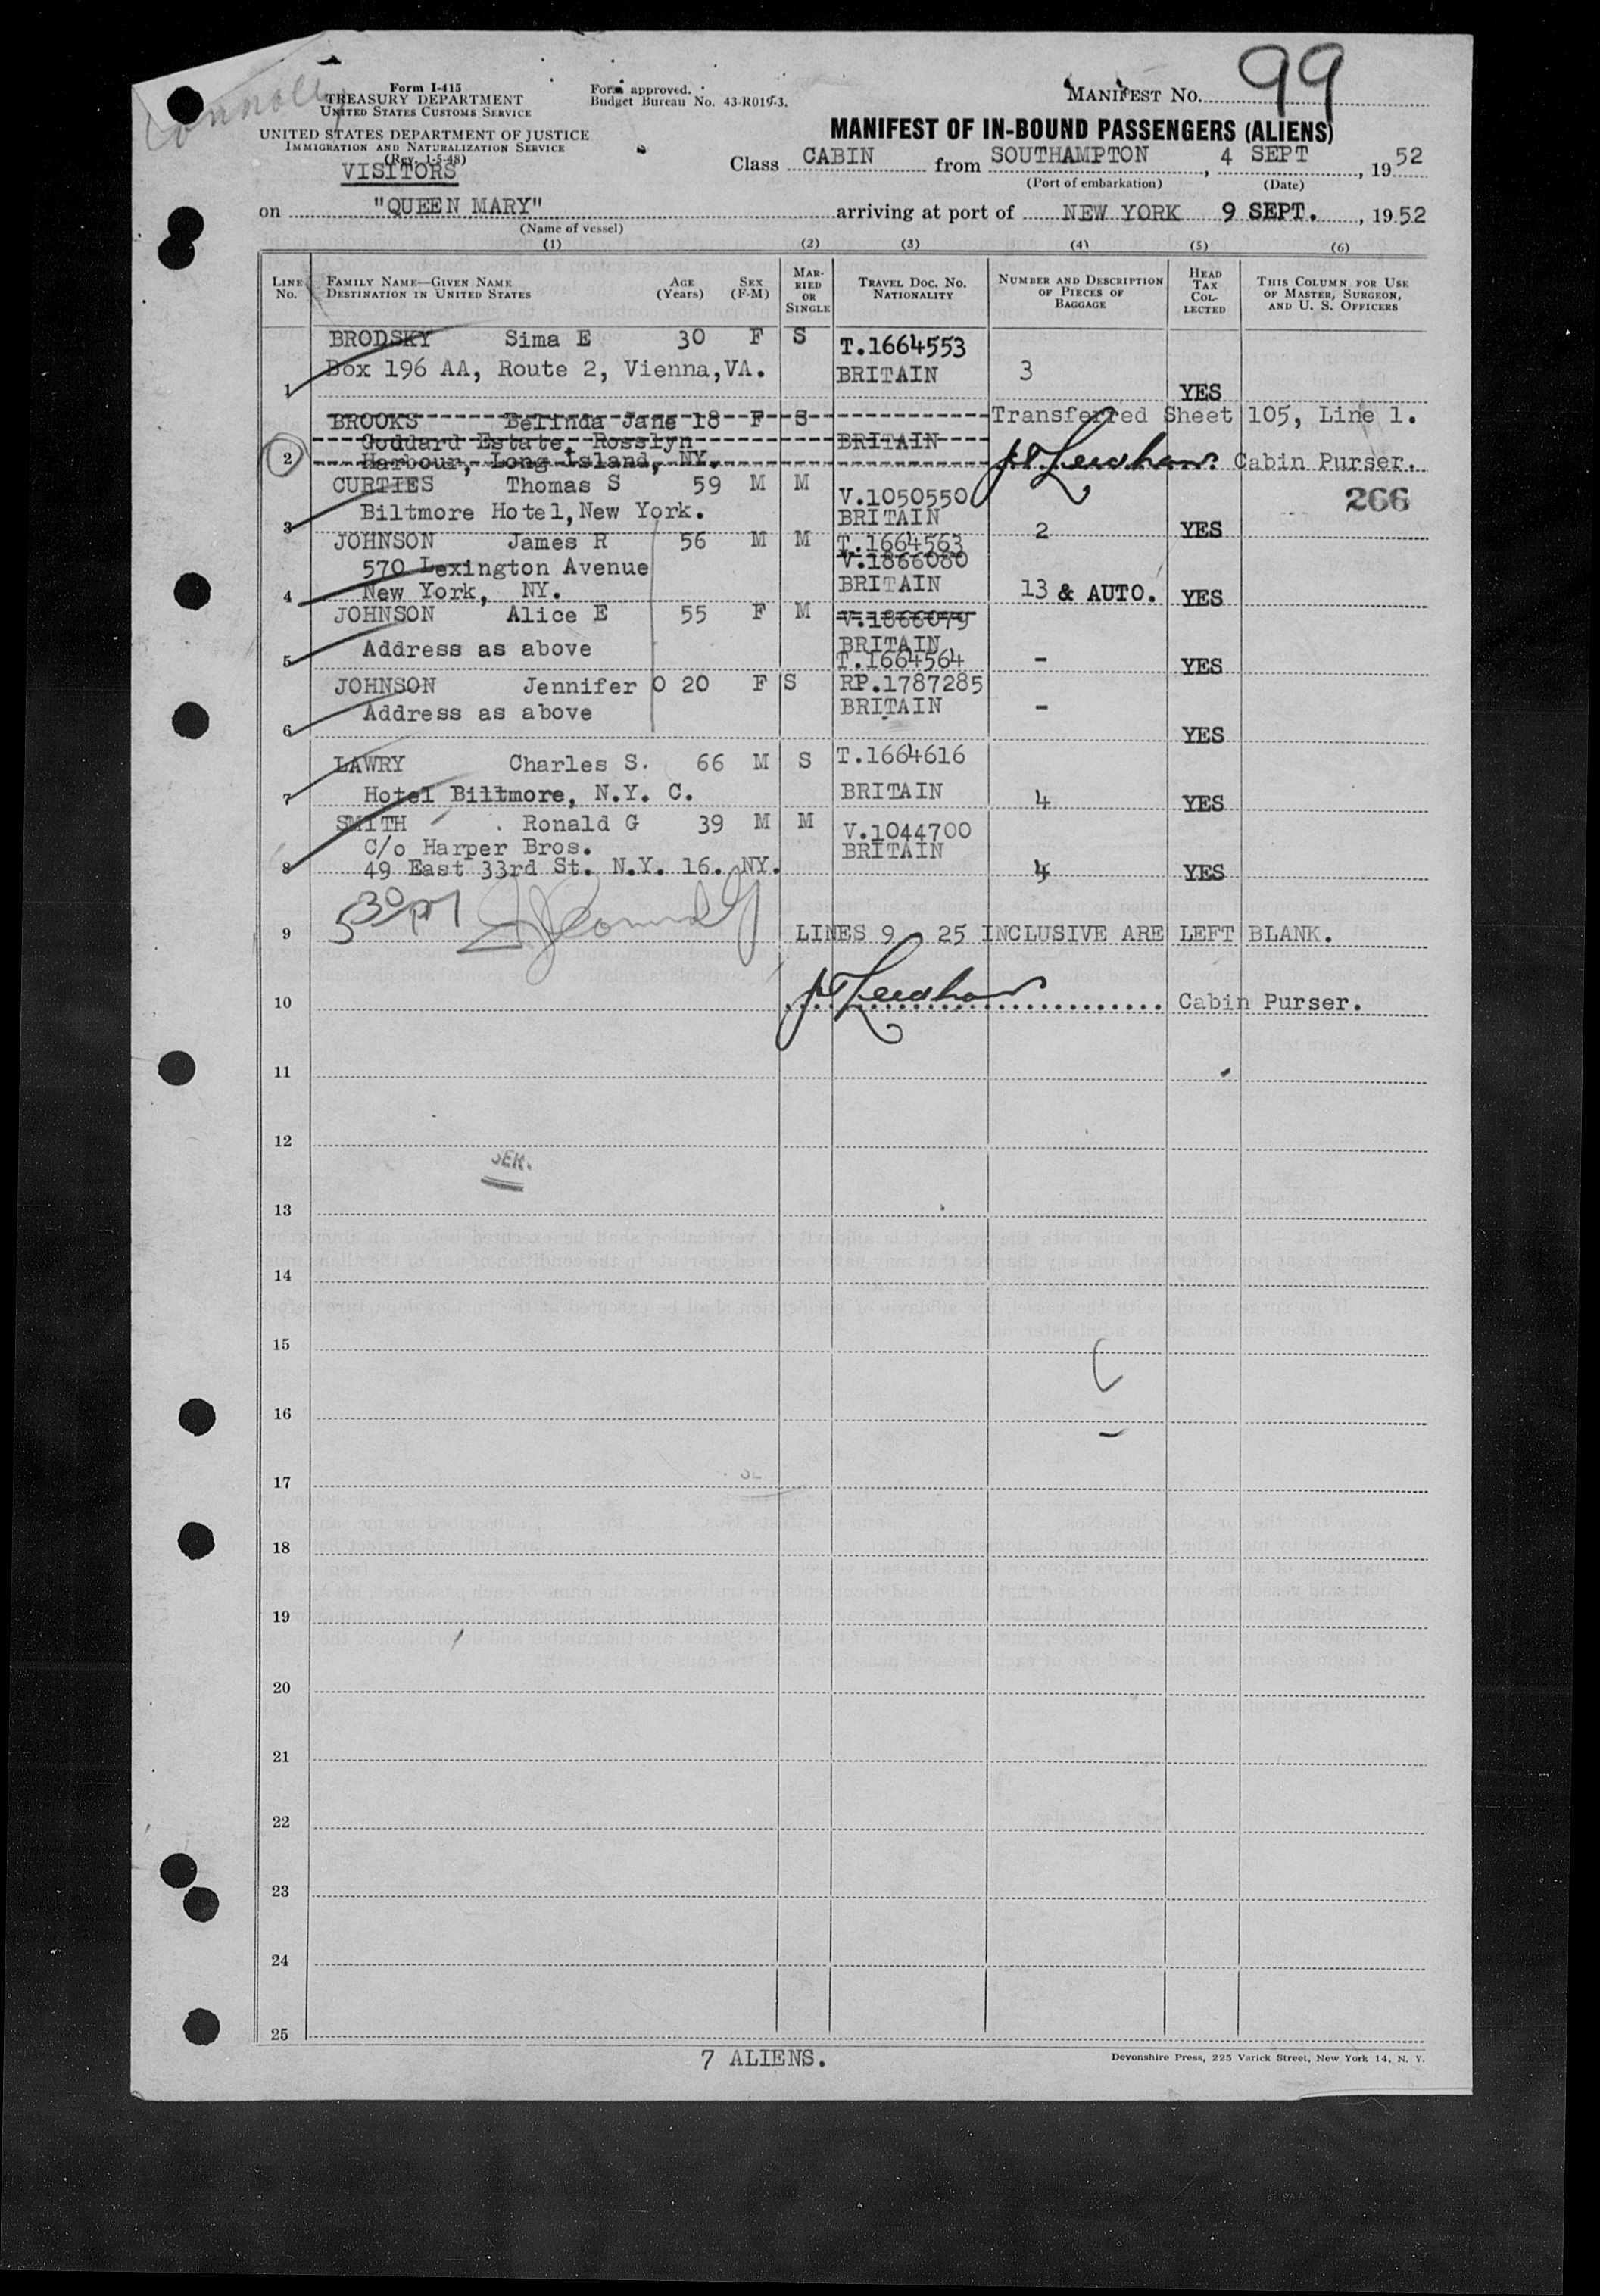 Connolly
Form I-415
TREASURY DEPARTMENT
UNITED STATES CUSTOMS SERVICE
UNITED STATES DEPARTMENT OF JUSTICE
IMMIGRATION AND NATURALIZATION SERVICE
(Rev. 1-5-48)
VISITORS
Form approved.
Budget Bureau No. 43-R019-3.
MANIFEST NO. 99
MANIFEST OF IN-BOUND PASSENGERS (ALIENS)
Class CABIN from SOUTHAMPTON, 4 SEPT, 1952
(Port of embarkation) (Date)
on "QUEEN MARY" arriving at port of NEW YORK 9 SEPT., 1952
(Name of vessel)
(1) (2) (3) (4) (5) (6)
LINE NO. FAMILY NAME—GIVEN NAME DESTINATION IN UNITED STATES AGE (Years) SEX (F-M) MARRIED OR SINGLE TRAVEL DOC. NO. NATIONALITY NUMBER AND DESCRIPTION OF PIECES OF BAGGAGE HEAD TAX COLLECTED THIS COLUMN FOR USE OF MASTER, SURGEON, AND U. S. OFFICERS
BRODSKY Sima E 30 F S T.1664553
Box 196 AA, Route 2, Vienna,VA. BRITAIN 3
1 YES
BROOKS Belinda Jane 18 F S Transferred Sheet 105, Line 1.
Goddard Estate, Rosslyn BRITAIN
2 Harbour, Long Island, NY. Cabin Purser.
CURTIES Thomas S 59 M M V.1050550 266
Biltmore Hotel,New York. BRITAIN
3 2 YES
JOHNSON James R 56 M M T.1664563
570 Lexington Avenue V.1866080
4 New York, NY. BRITAIN 13 & AUTO. YES
JOHNSON Alice E 55 F M V.1866079
Address as above BRITAIN
5 T.1664564 - YES
JOHNSON Jennifer O 20 F S RP.1787285
Address as above BRITAIN -
6 YES
LAWRY Charles S. 66 M S T.1664616
7 Hotel Biltmore, N.Y. C. BRITAIN 4 YES
SMITH Ronald G 39 M M V.1044700
C/o Harper Bros. BRITAIN
8 49 East 33rd St. N.Y. 16. NY. YES
530 PM
9 LINES 9 - 25 INCLUSIVE ARE LEFT BLANK.
10 Cabin Purser.
11
12
13
14
15
16
17
18
19
20
21
22
23
24
25
7 ALIENS.
Devonshire Press, 225 Varick Street, New York 14, N. Y.